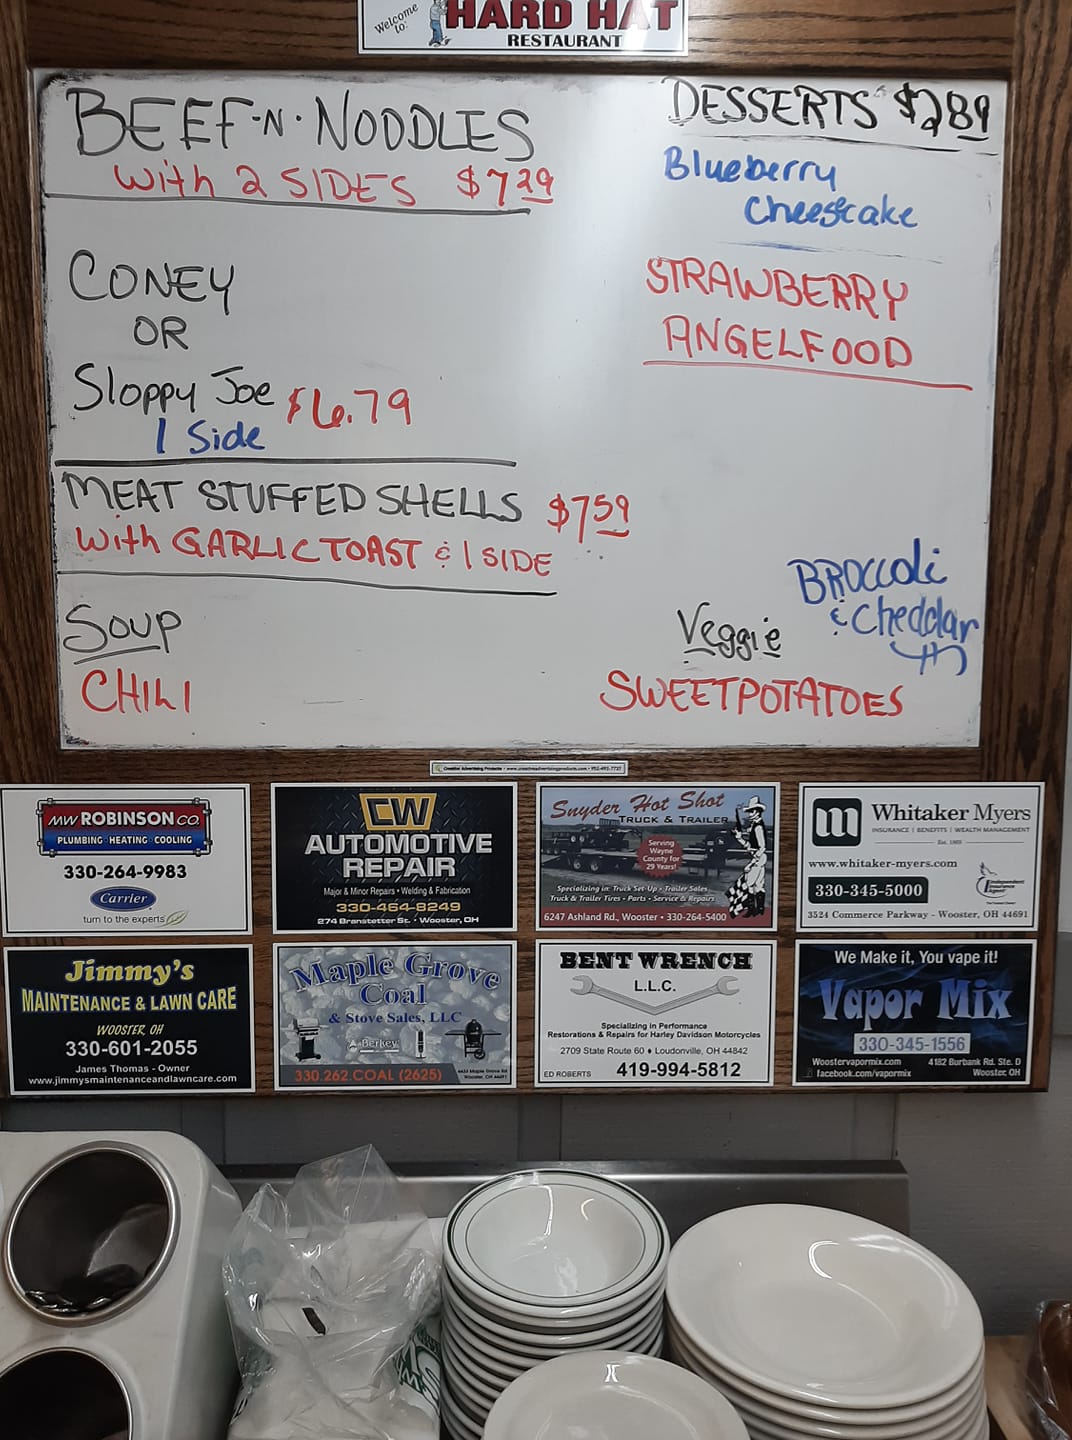 Welcome
to:
HARD HAT
RESTAURANT
BEEF·N·NOODLES
with 2 SIDES $7.29
CONEY
OR
Sloppy Joe $6.79
1 Side
MEAT STUFFED SHELLS $7.59
with GARLIC TOAST & 1 SIDE
SOUP
CHILI
DESSERTS $2.89
Blueberry
Cheesecake
STRAWBERRY
ANGELFOOD
BROCCOLI
& Cheddar
Veggie
SWEETPOTATOES
Creative Advertising Products
MW ROBINSON CO.
PLUMBING · HEATING · COOLING
330-264-9983
Carrier
turn to the experts
CW
AUTOMOTIVE
REPAIR
Major & Minor Repairs • Welding & Fabrication
330-464-8249
274 Branstetter St. • Wooster, OH
Snyder Hot Shot
TRUCK & TRAILER
Serving
Wayne
County for
29 Years!
Specializing in: Truck Set-Up • Trailer Sales
Truck & Trailer Tires • Parts • Service & Repairs
6247 Ashland Rd., Wooster • 330-264-5400
m
Whitaker Myers
INSURANCE | BENEFITS | WEALTH MANAGEMENT
www.whitaker-myers.com
330-345-5000
Independent
Insurance
Agent
3524 Commerce Parkway - Wooster, OH 44691
Jimmy's
MAINTENANCE & LAWN CARE
WOOSTER, OH
330-601-2055
James Thomas - Owner
www.jimmysmaintenanceandlawncare.com
Maple Grove
Coal
& Stove Sales, LLC
Berkey
330.262.COAL (2625)
BENT WRENCH
L.L.C.
Specializing in Performance
Restorations & Repairs for Harley Davidson Motorcycles
2709 State Route 60 ♦ Loudonville, OH 44842
ED ROBERTS 419-994-5812
We Make it, You vape it!
Vapor Mix
330-345-1556
Woostervapormix.com 4182 Burbank Rd. Ste. D
facebook.com/vapormix Wooster, OH